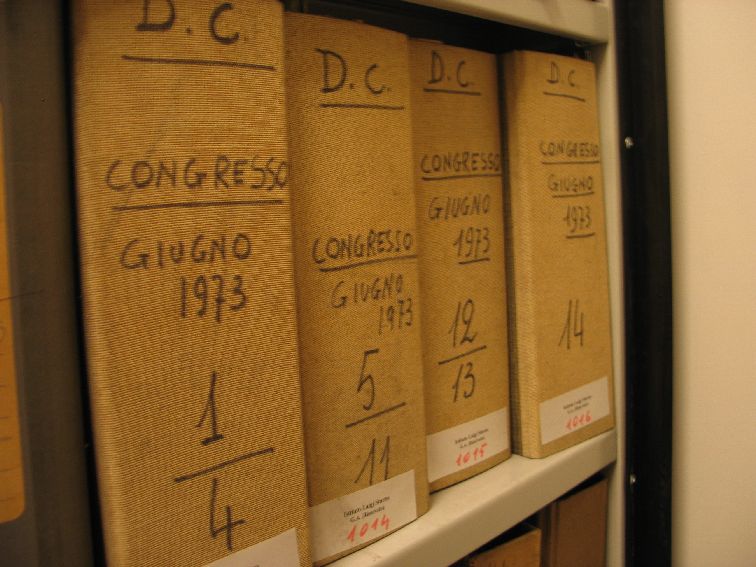 D. C.
CONGRESSO
GIUGNO
1973
1
4
D. C.
CONGRESSO
GIUGNO
1973
5
11
Istituto Luigi Sturzo
1014
D. C.
CONGRESSO
GIUGNO
1973
12
13
Istituto Luigi Sturzo
1015
D. C.
CONGRESSO
GIUGNO
1973
14
Istituto Luigi Sturzo
1016